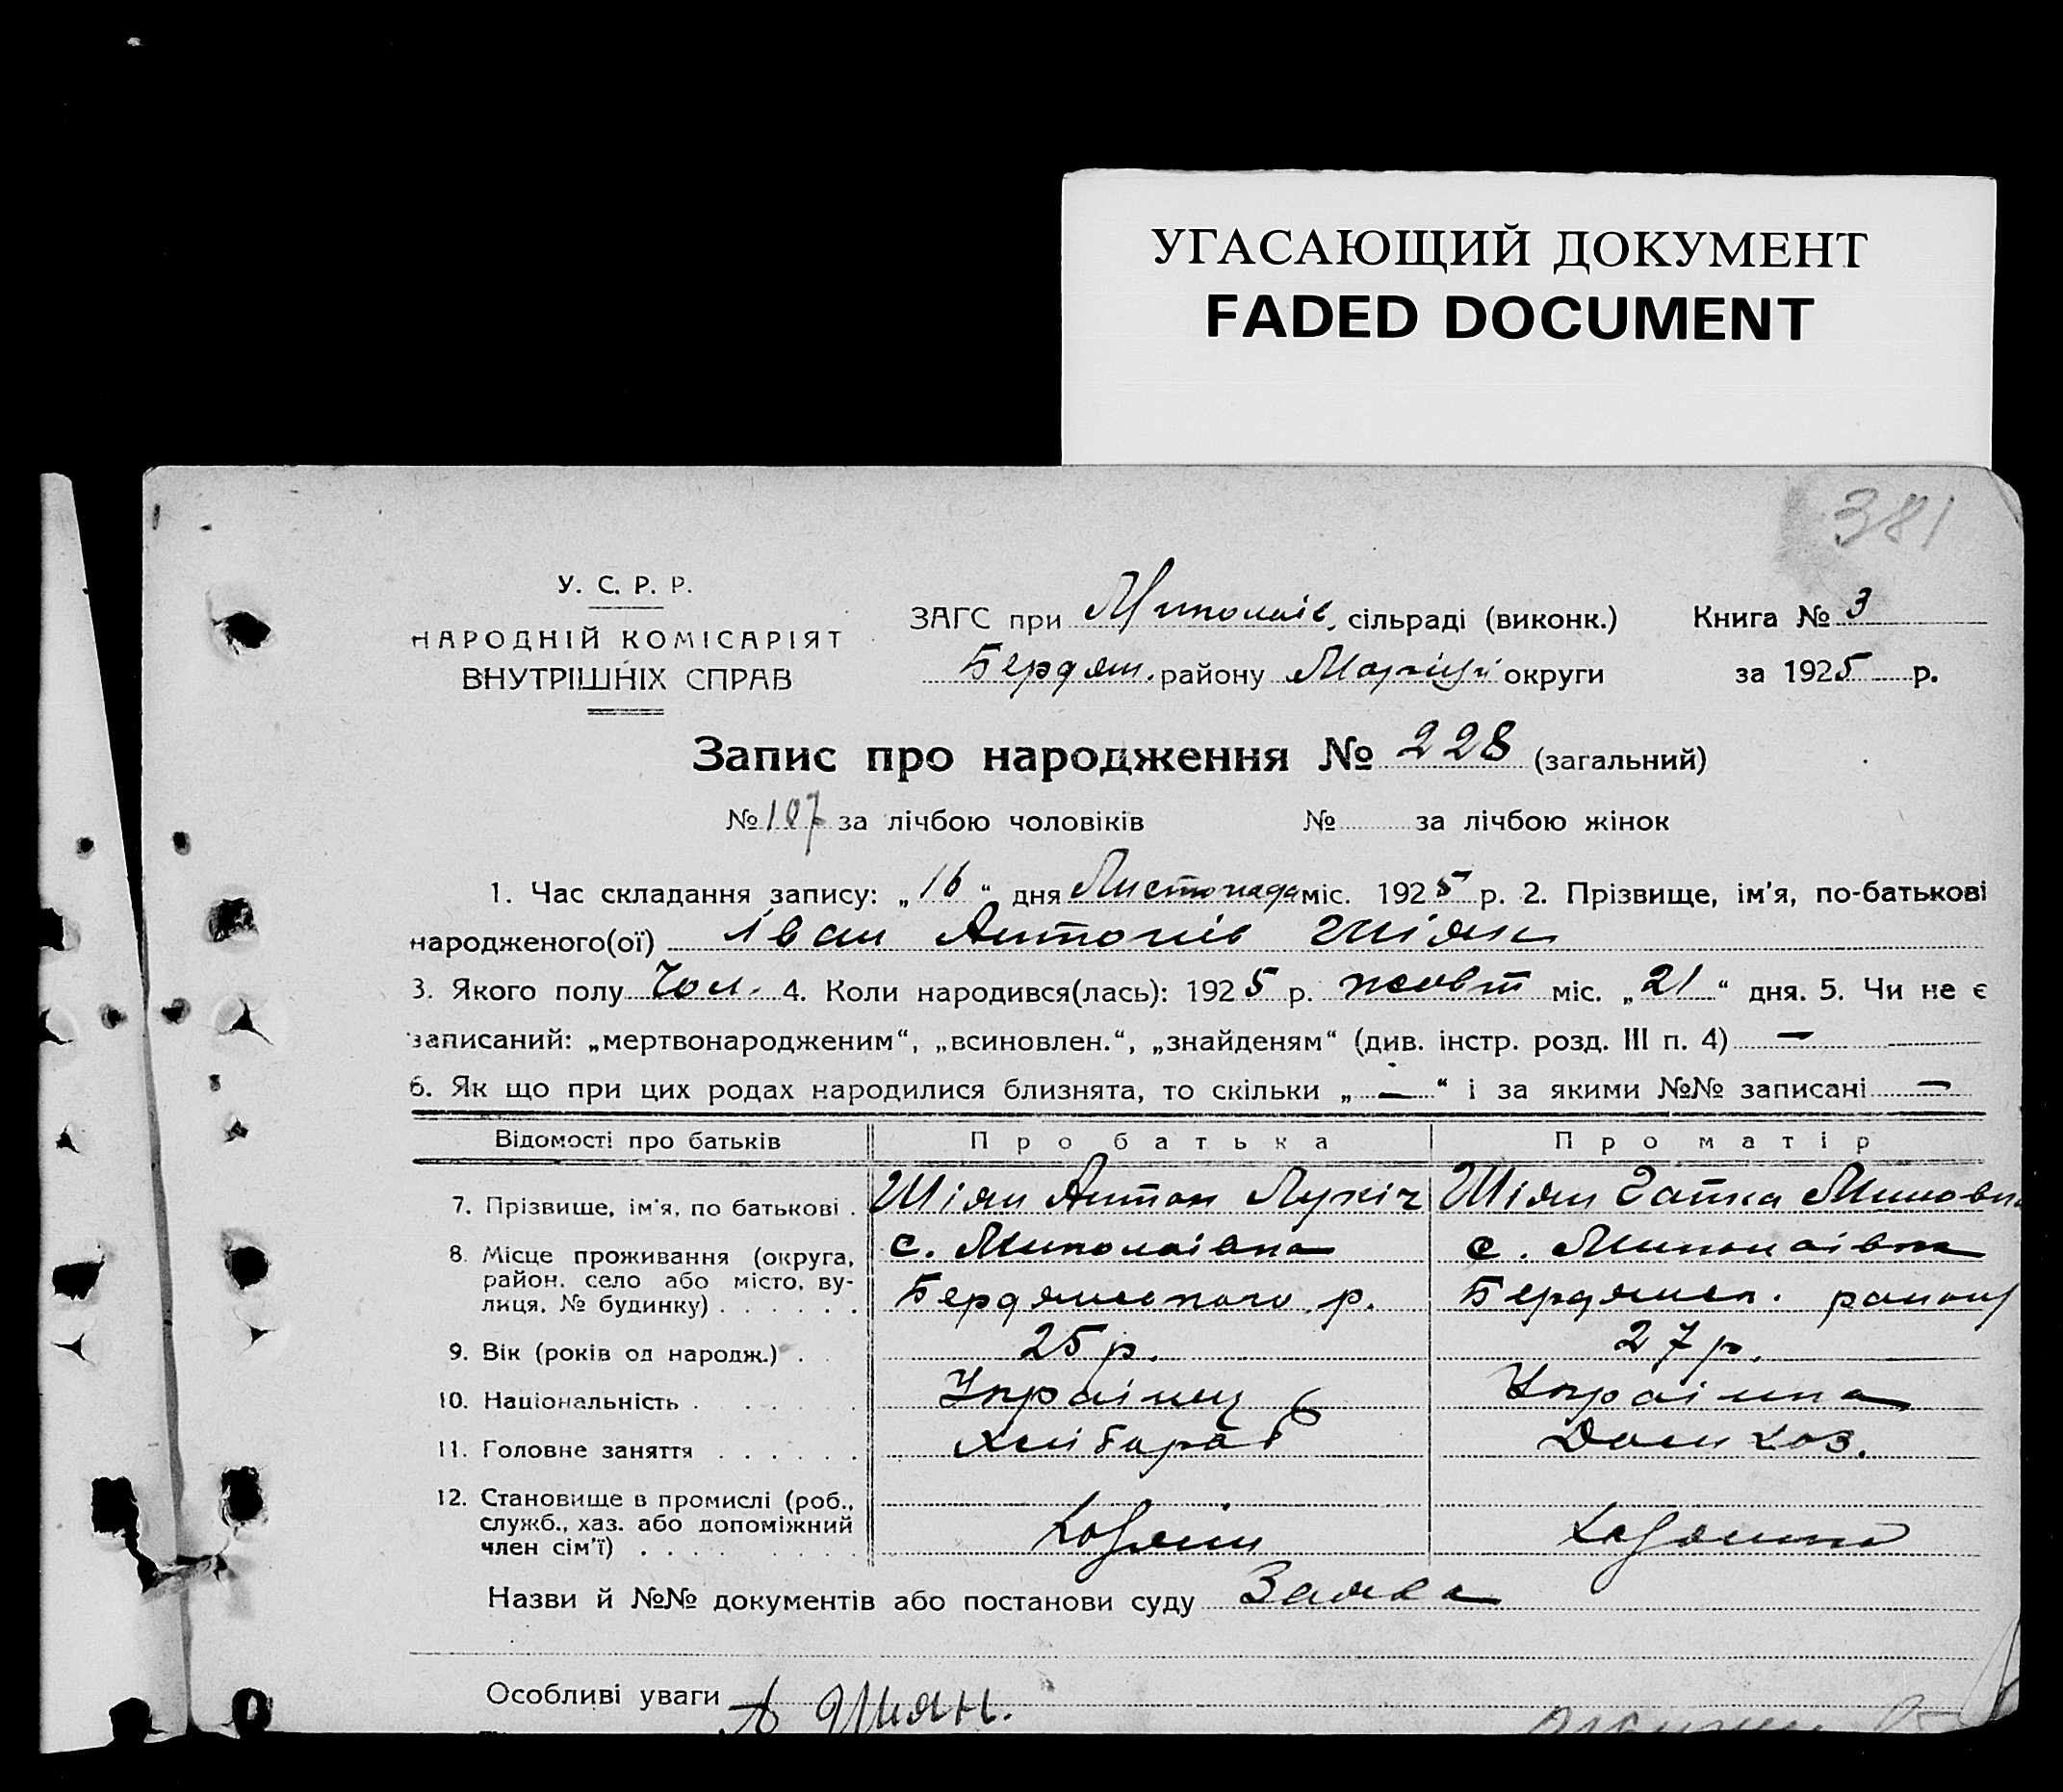 УГАСАЮЩИЙ ДОКУМЕНТ
FADED DOCUMENT
381
У. С. Р. Р.
НАРОДНІЙ КОМІСАРІЯТ
ВНУТРІШНІХ СПРАВ
ЗАГС при Миколаїв. сільраді (виконк.) Книга № 3
Бердян. району Маріуп округи за 1925 р.
Запис про народження № 228 (загальний)
№ 107 за лічбою чоловіків № за лічбою жінок
1. Час складання запису: „16“ дня Листопада міс. 1925 р. 2. Прізвище, ім'я, по-батькові
народженого(ої) Іван Антонів Шіян
3. Якого полу Чол. 4. Коли народився(лась): 1925 р. жовт міс. „21“ дня. 5. Чи не є
записаний: „мертвонародженим“, „всиновлен.“, „знайденям“ (див. інстр. розд. III п. 4) —
6. Як що при цих родах народилися близнята, то скільки „—“ і за якими №№ записані —
Відомості про батьків Про батька Про матір
7. Прізвище, ім'я, по батькові . Шіян Антон Лукіч Шіян
8. Місце проживання (округа, с. Миколаівка с. Миколаівка
район, село або місто, ву-
лиця, № будинку) . . . . . . Бердянського р. Бердянск. району
9. Вік (років од народж.) . . 25 р. 27 р.
10. Національність . . . . . Украінец Украінка
11. Головне заняття . . . . . . Хлібороб Дом хоз.
12. Становище в промислі (роб.,
служб., хаз. або допоміжний
член сім'ї) . . . . . . . Хазяін
Назви й №№ документів або постанови суду Заява
Особливі уваги А Шиян.